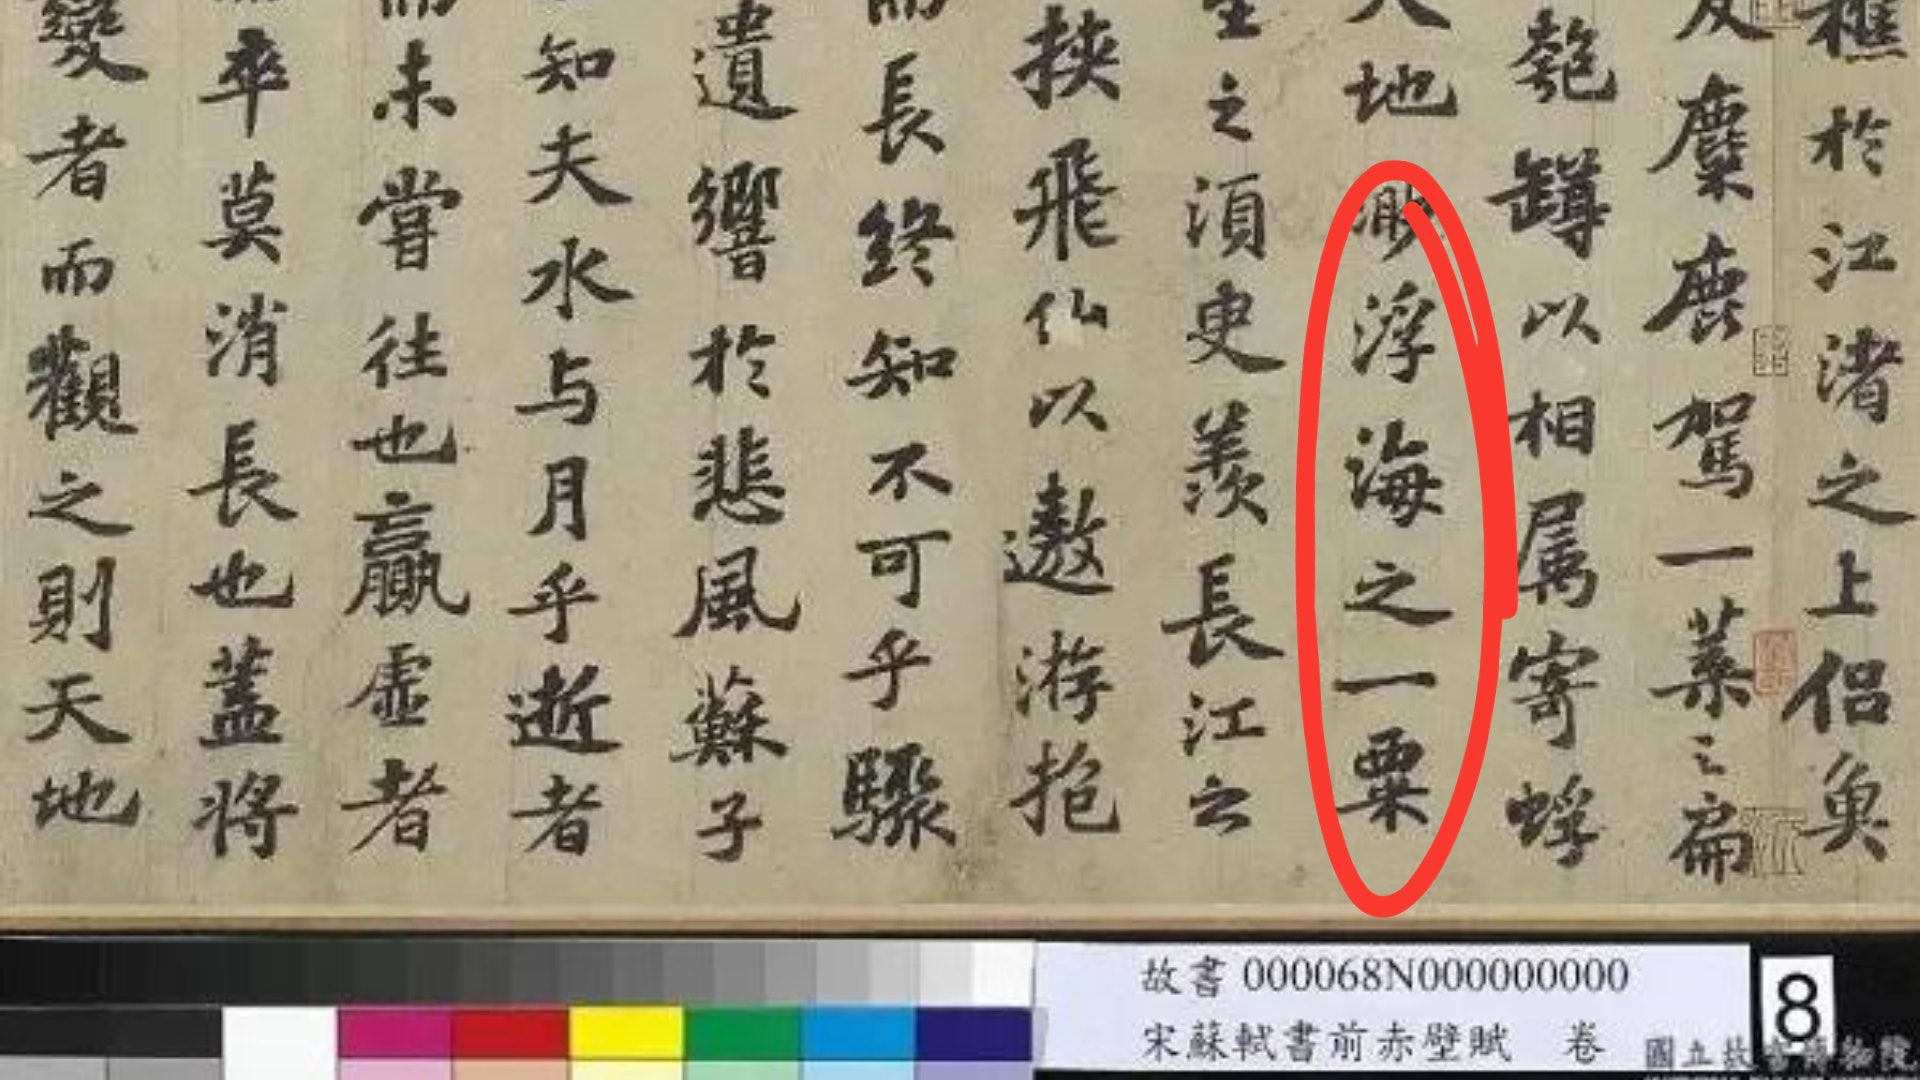 樵於江渚之上侣魚
友麋鹿駕一葉之扁
匏罇以相属寄蜉
天地渺浮海之一粟
生之須臾羨長江之
挾飛仙以遨游抱
而長終知不可乎驟
遺響於悲風蘇子
知夫水与月乎逝者
而未嘗往也贏虛者
卒莫消長也蓋將
變者而觀之則天地
故書000068N000000000
宋蘇軾書前赤壁賦 卷
8
國立故宮博物院